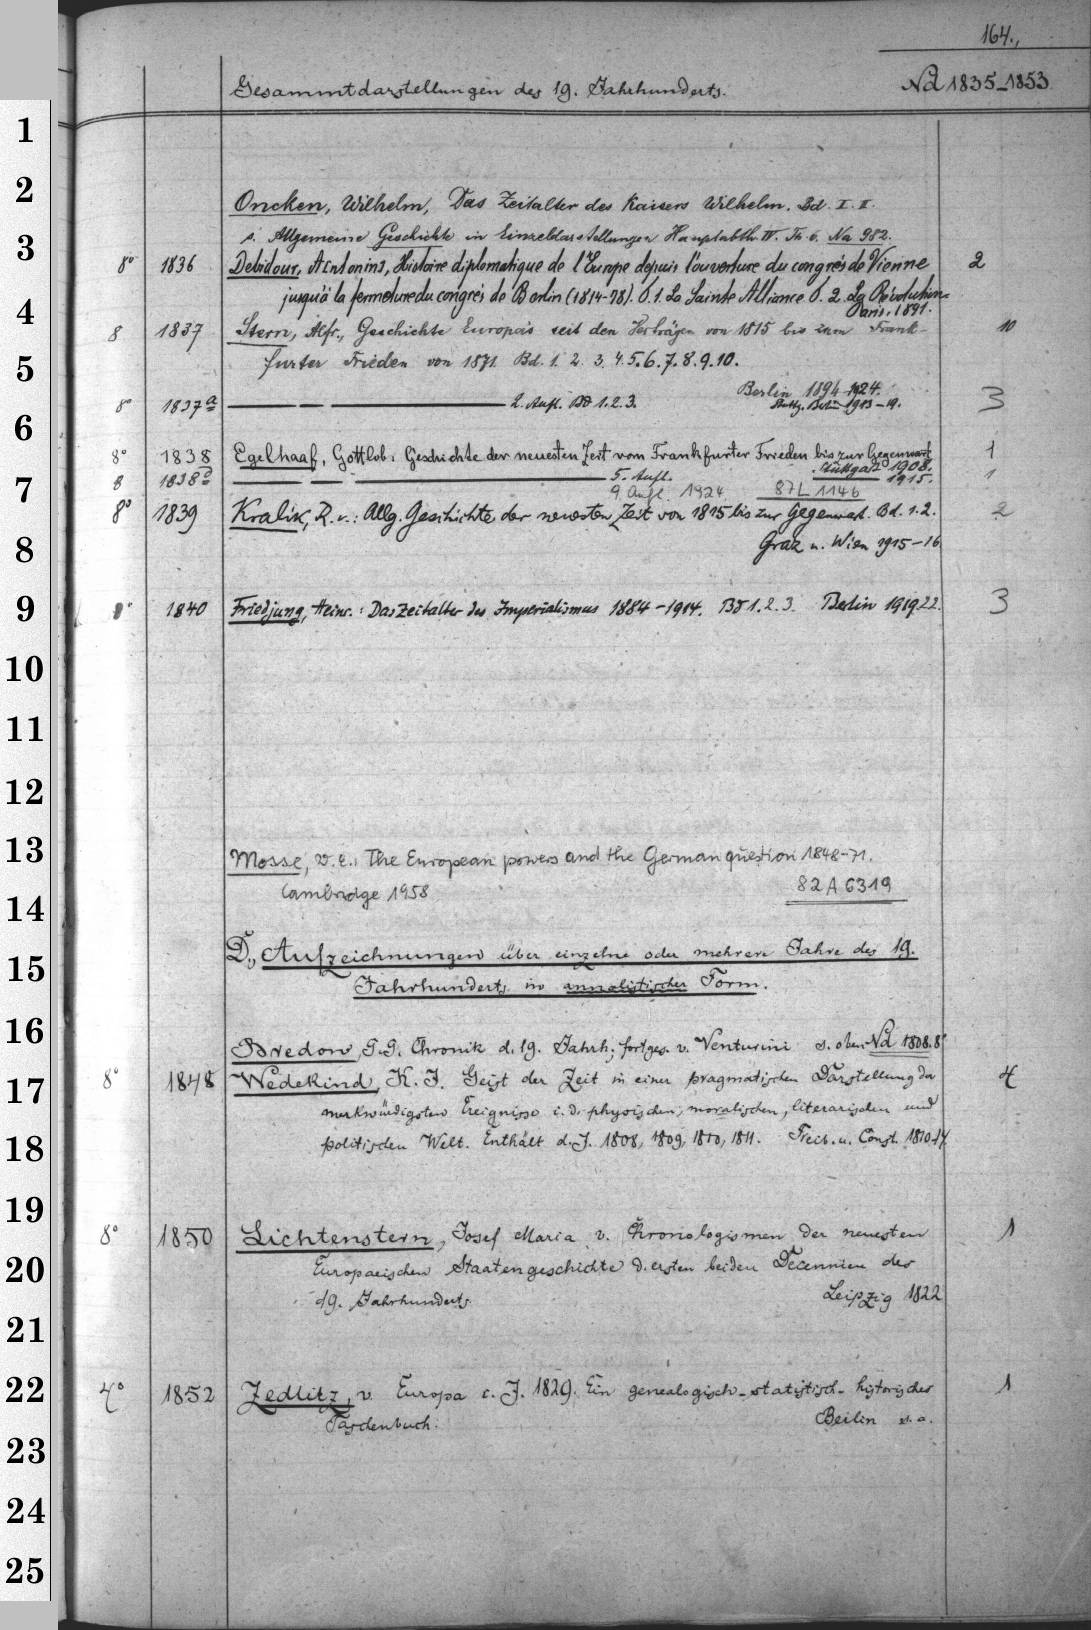 164.,
Gesammtdarstellungen des 19. Jahrhunderts. Nd 1835–1853
1
2
Oncken, Wilhelm, Das Zeitalter des Kaisers Wilhelm. Bd. I. II.
3
s. Allgemeine Geschichte in Einzeldarstellungen Hauptabth. IV. Th. 6. Na 982.
8° 1836 Debidour, Antonins, Histoire diplomatique de l'Europe depuis l'ouverture du congrès de Vienne 2
4
jusqu'à la fermeture du congrès de Berlin (1814-78). T. 1. La Sainte Alliance T. 2. La Révolution.
Paris. 1891.
8 1837 Stern, Alfr., Geschichte Europas seit den Verträgen von 1815 bis zum Frank- 10
5
furter Frieden von 1871. Bd. 1. 2. 3. 4. 5. 6. 7. 8. 9. 10.
Berlin 1894-1924.
8° 1837a 2. Aufl. Bd 1. 2. 3. Stuttg. Berlin 1913-19. 3
6
8° 1838 Egelhaaf, Gottlob: Geschichte der neuesten Zeit vom Frankfurter Frieden bis zur Gegenwart 1
Stuttgart 1908.
7
8 1838d 5. Aufl. 1915. 1
9. Aufl. 1924. 87 L 1146
8° 1839 Kralik, R. v.: Allg. Geschichte der neuesten Zeit von 1815 bis zur Gegenwart. Bd. 1. 2. 2
8
Graz u. Wien 1915-16
9
8° 1840 Friedjung, Heinr.: Das Zeitalter des Imperialismus 1884-1914. Bd 1. 2. 3. Berlin 1919.22. 3
10
11
12
13
Mosse, W. E.: The European powers and the German question 1848-71.
Cambridge 1958 82 A 6319
14
D., Aufzeichnungen über einzelne oder mehrere Jahre des 19.
15
Jahrhunderts in annalistischer Form.
16
Bredow, G. G. Chronik d. 19. Jahrh; fortges. v. Venturini s. oben Nd 1808. 8°
17
8° 1848 Wedekind, K. J. Geist der Zeit in einer pragmatischen Darstellung der 4
merkwürdigsten Ereignisse i. d. physischen, moralischen, literarischen und
18
politischen Welt. Enthält d. J. 1808, 1809, 1810, 1811. Freib. u. Const. 1810-14.
19
8° 1850 Lichtenstern, Josef Maria v. Chronologismen der neuesten 1
20
Europaeischen Staatengeschichte d. ersten beiden Decennien des
19. Jahrhunderts. Leipzig 1822
21
22
4° 1852 Zedlitz, v. Europa i. J. 1829. Ein genealogisch-statistisch-historisches 1
Taschenbuch. Berlin s. a.
23
24
25